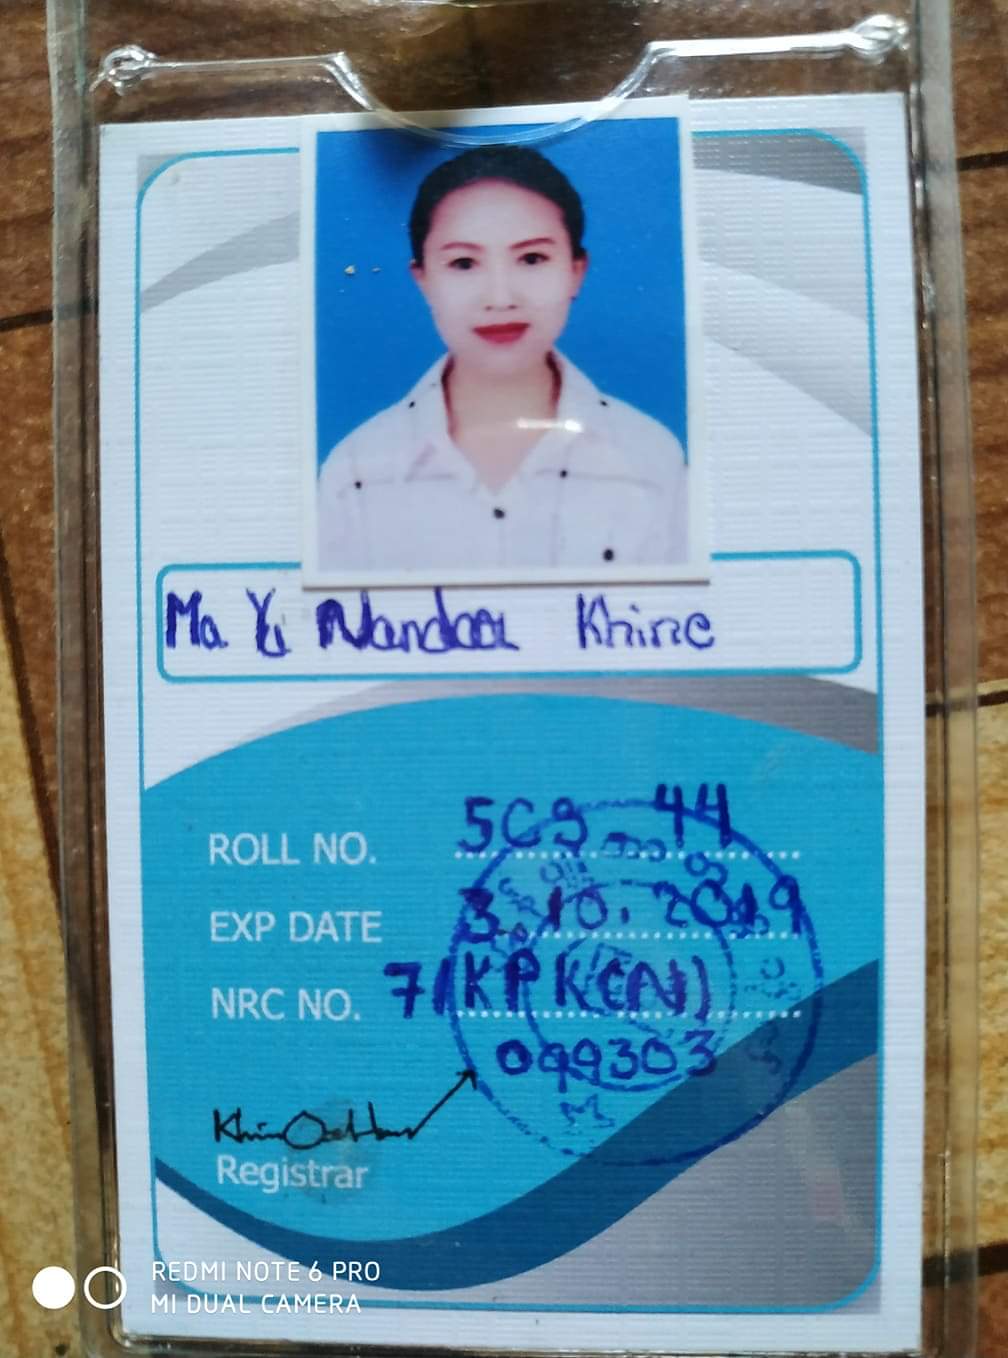 Ma Yi Nandar Khine
ROLL NO. 5CS_44
EXP DATE 3.10.2019
NRC NO. 7/KPK(N)
099303
Registrar
REDMI NOTE 6 PRO
MI DUAL CAMERA